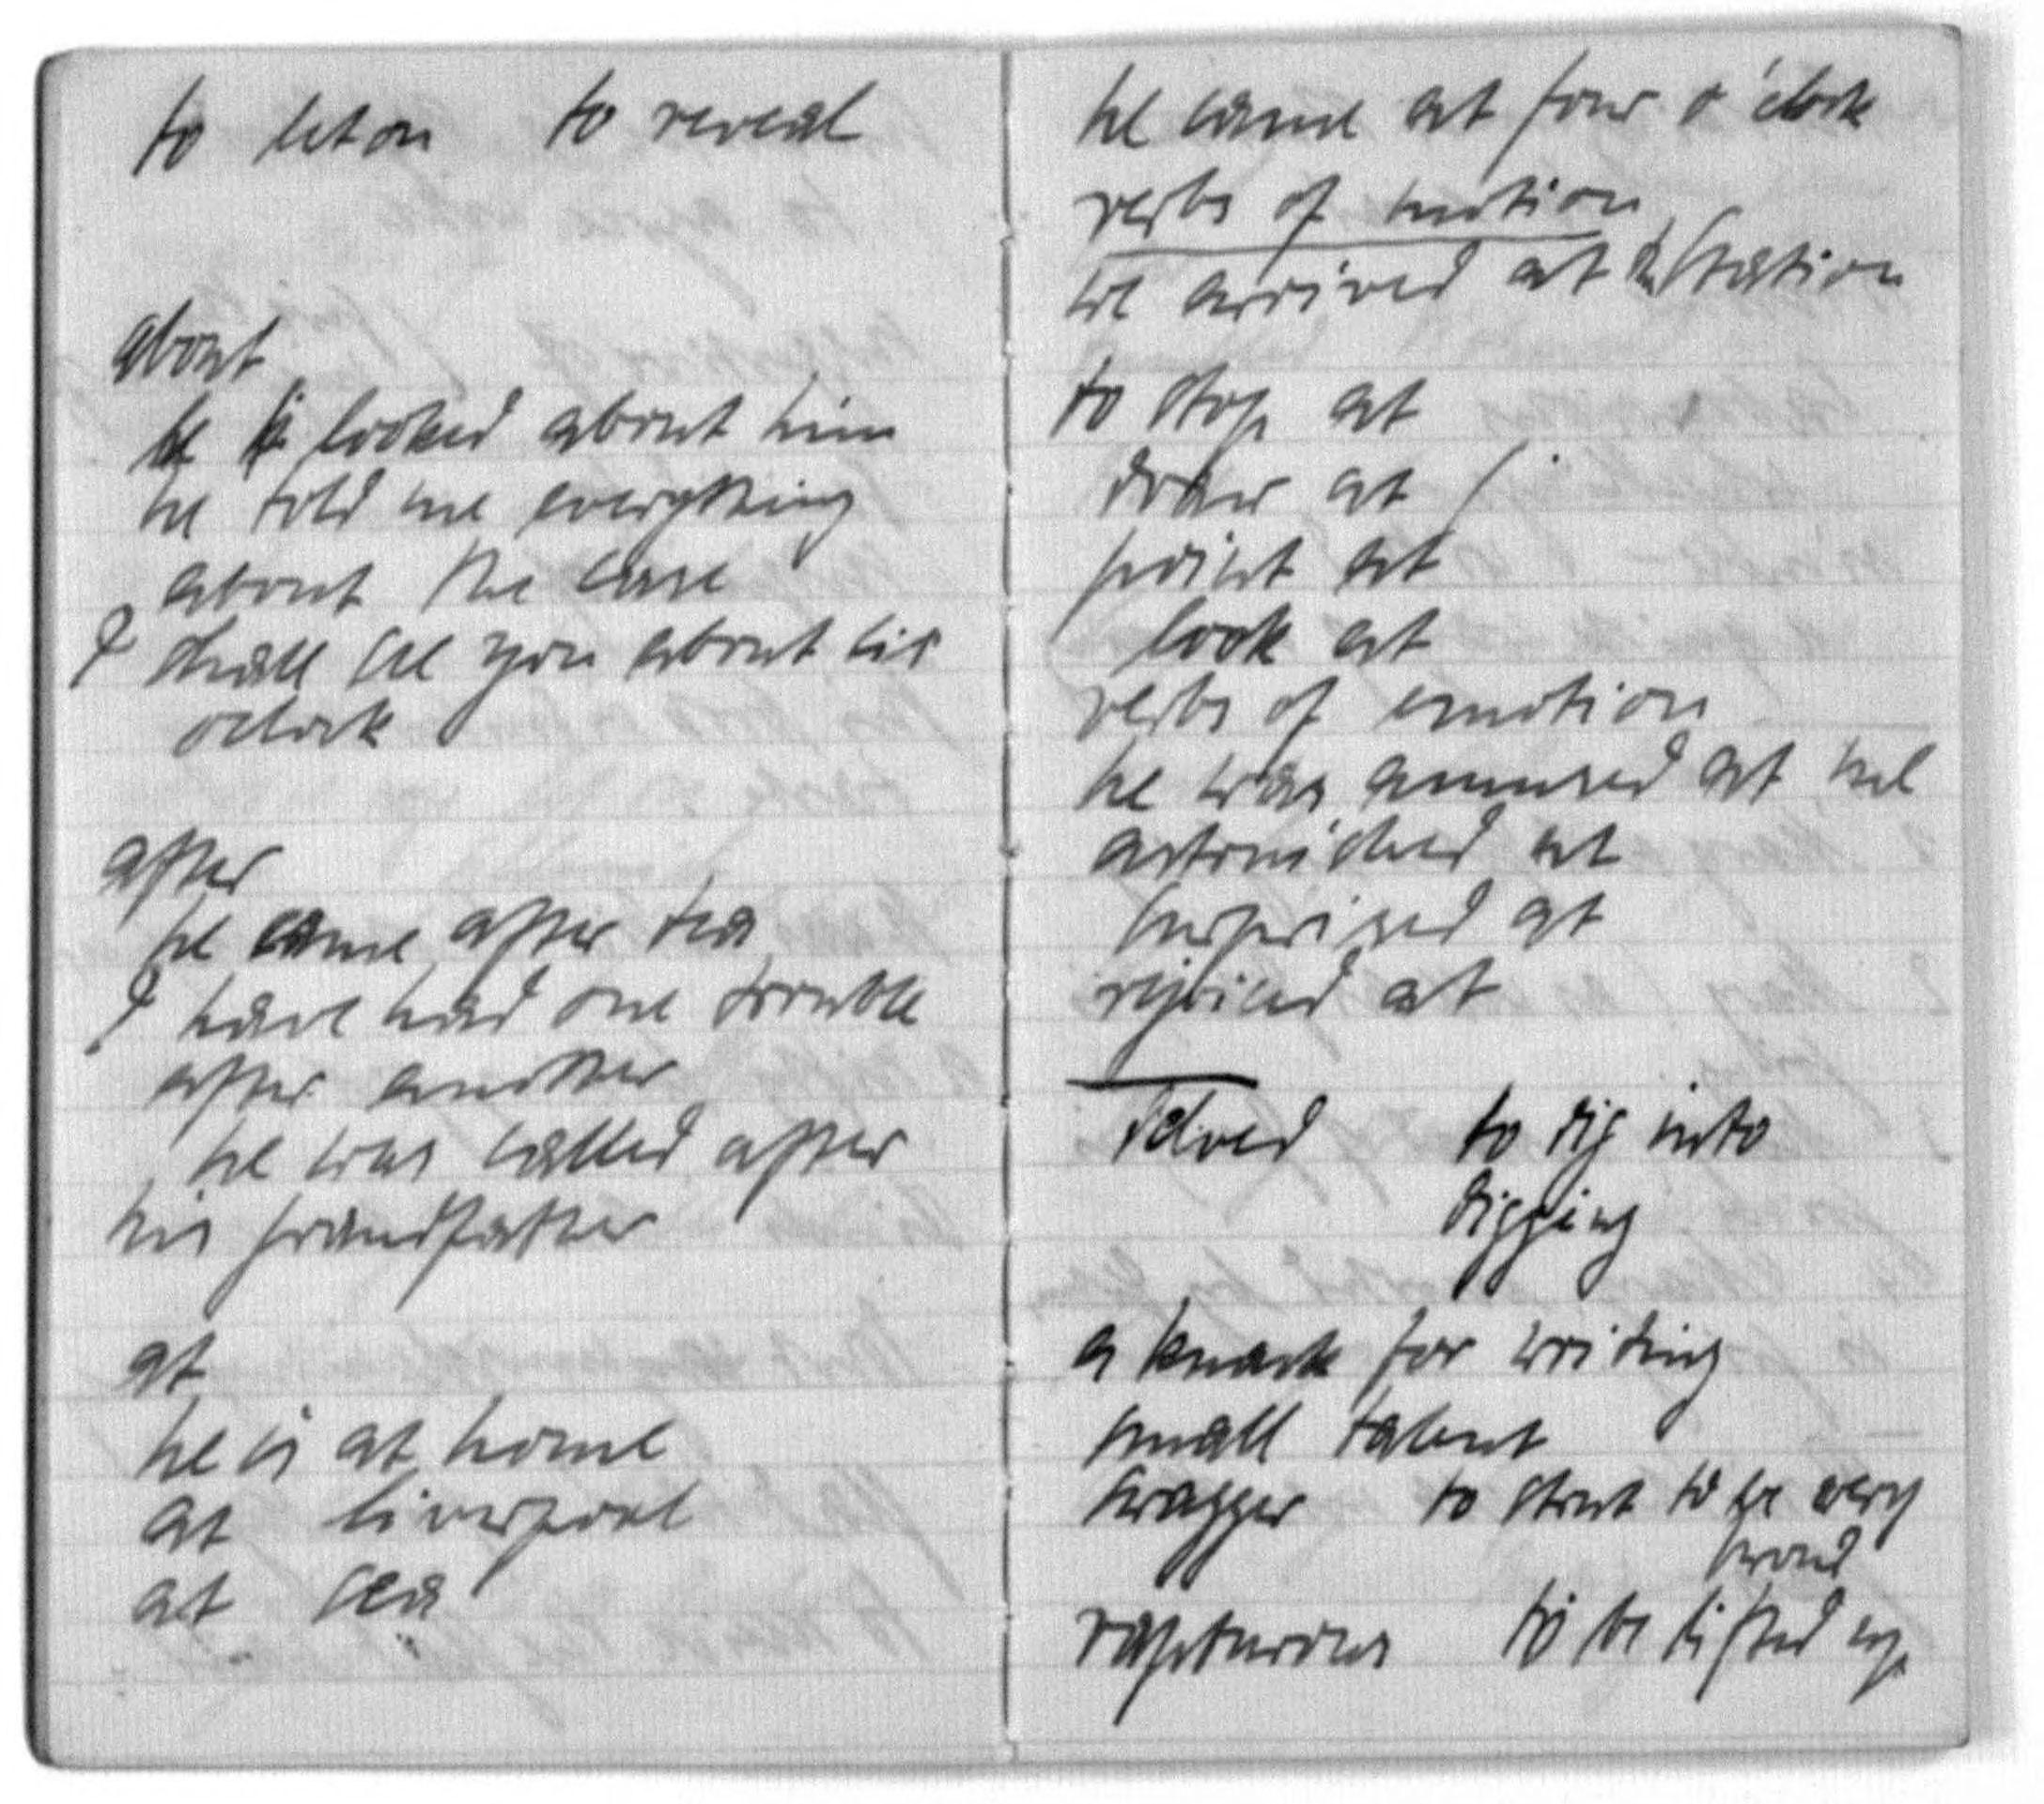 to let on to reveal
about
he looked about him
he told me everything
about the case
I shall see you about six
oclock
after
he came after tea
I have had one trouble
after another
he was called after
his grandfather
at
he is at home
at Liverpool
at sea
he came at four o'clock
verbs of motion
he arrived at the station
to stop at
draw at
point at
look at
verbs of emotion
he was amused at me
astonished at
surprised at
rejoiced at
delved to dig into
digging
a knack for writing
small talent
swagger to strut to be very
proud
rapturous to be lifted up